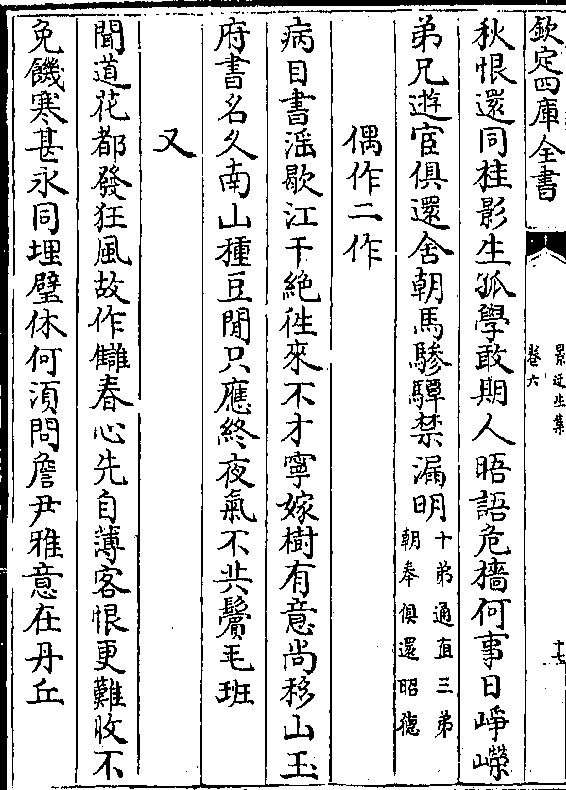 欽定四庫全書
景迂生集
卷六
十七
秋恨還同桂影生孤學敢期人晤語危檣何事日崢嶸
弟兄遊宦俱還舍朝馬驂驔禁漏明十弟通直三弟
朝奉俱還昭德
偶作二作
病目書滛歇江干絶徃來不才寧嫁樹有意尚移山玉
府書名久南山種豆閒只應終夜氣不共鬢毛班
又
聞道花都發狂風故作讎春心先自薄客恨更難收不
免饑寒甚永同埋璧休何湏問詹尹雅意在丹丘